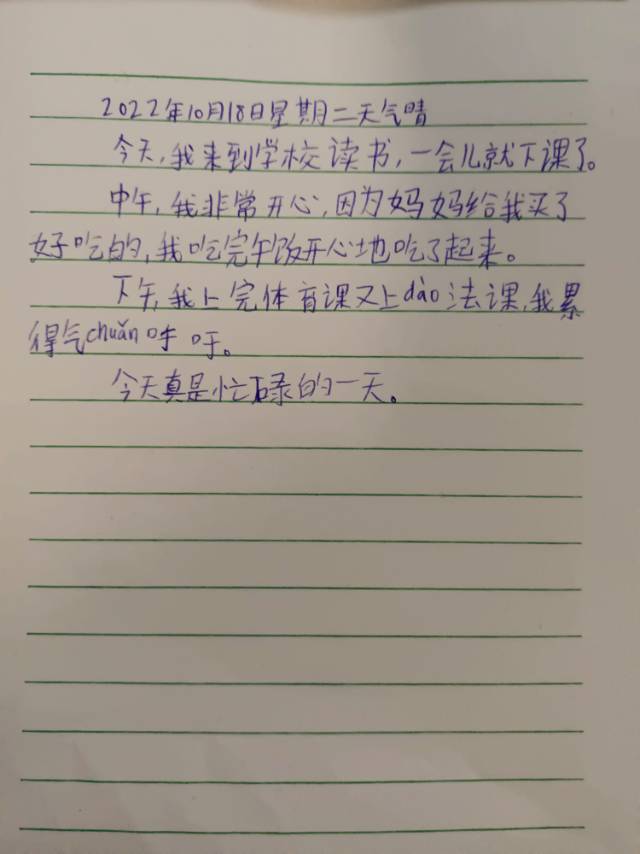 2022年10月18日星期二天气晴
今天,我来到学校读书,一会儿就下课了。
中午,我非常开心,因为妈妈给我买了
好吃的,我吃完午饭开心地吃了起来。
下午,我上完体育课又上dào法课,我累
得气chuǎn吁吁。
今天真是忙碌的一天。